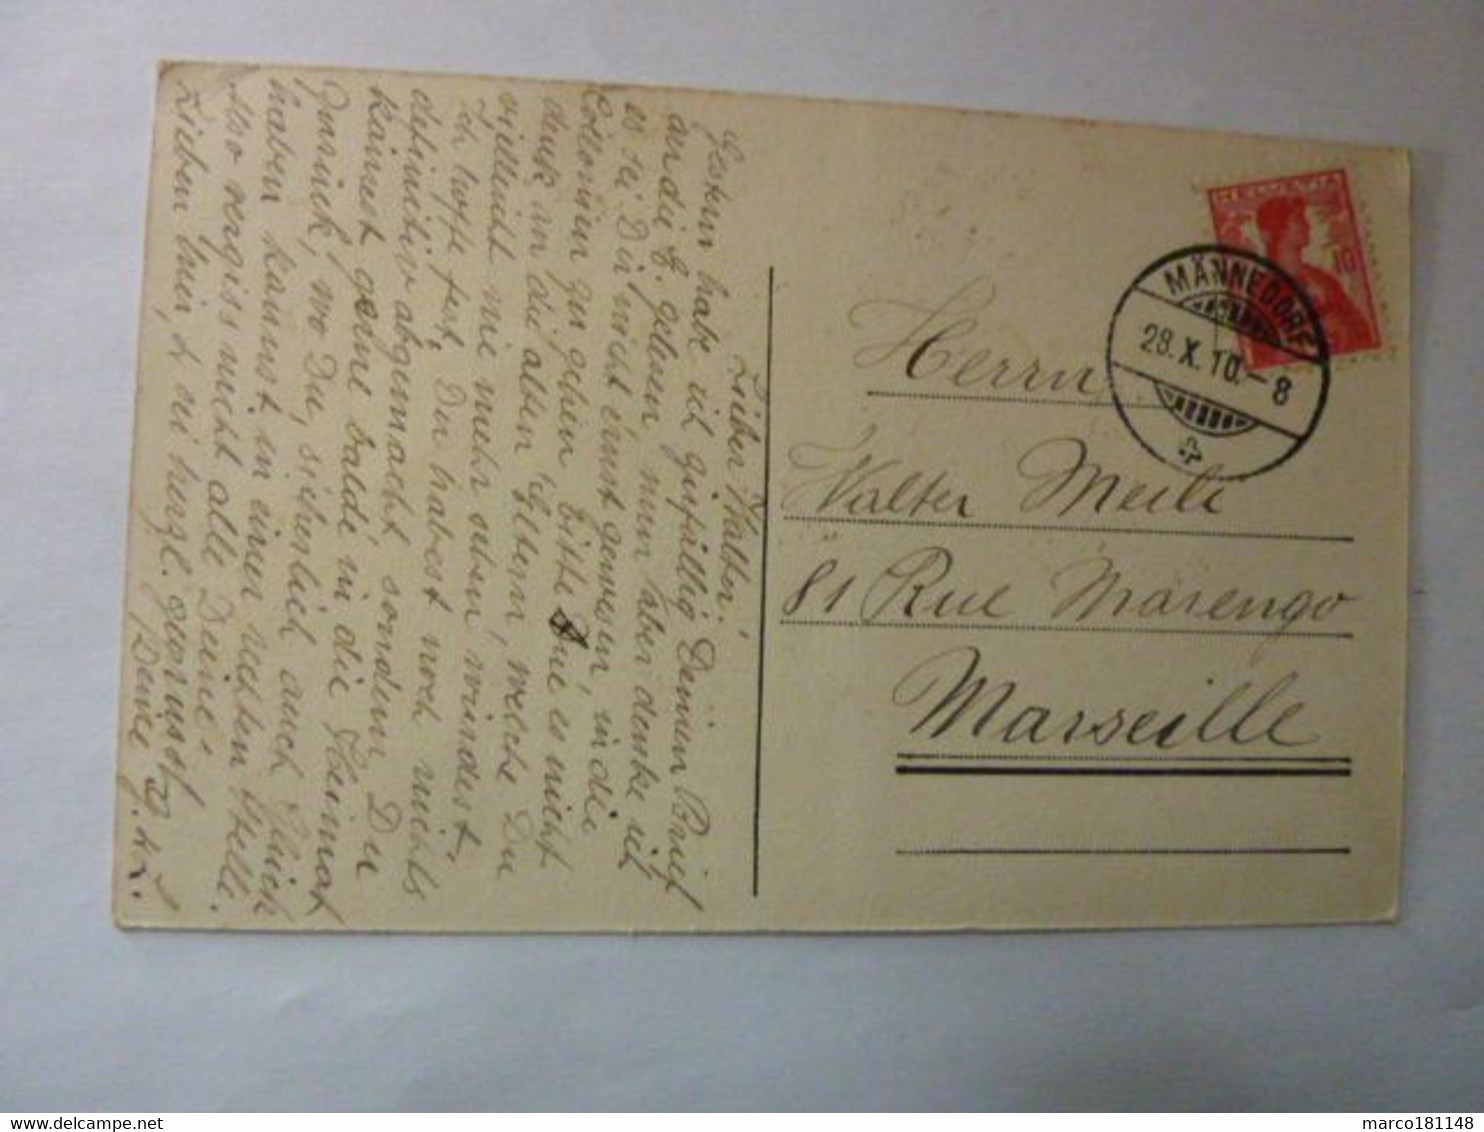 Lieber Walter!
Gestern habe ich zufällig Deinen Brief
an die E. gelesen, nun aber denke ich
es sei Dir nicht ernst gewesen, in die
Colonien zu gehen. Bitte tue es nicht
denk an die alten Eltern, welche Du
vielleicht nie mehr sehen würdest.
Ich hoffe fest, Du habest noch nichts
definitiv abgemacht sondern Du
kämest gerne balde in die Heimat
zurück, wo Du sicherlich auch Glück
haben kannst in einer rechten Stelle.
Also vergiss nicht alle Deine
Lieben hier, & sei herzl. gegrüsst
Deine
HELVETIA
10
MÄNNEDORF
28.X.10.-8
Herrn
Walter Meili
81 Rue Marengo
Marseille
delcampe.net
marco181148